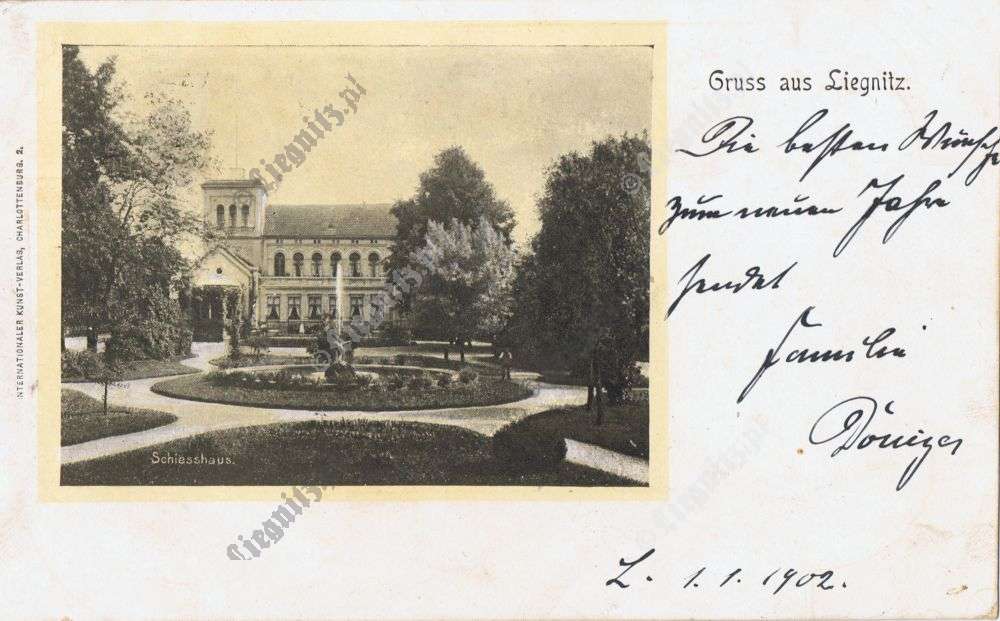 INTERNATIONALER KUNST-VERLAG, CHARLOTTENBURG. 2.
Gruss aus Liegnitz.
Die besten Wünsche
zum neuen Jahre
sendet
Familie
Schiesshaus.
L. 1.1.1902.
© Liegnitz.pl
© Liegnitz.pl
Liegnitz.pl
© Liegnitz.pl
© Liegnitz.pl